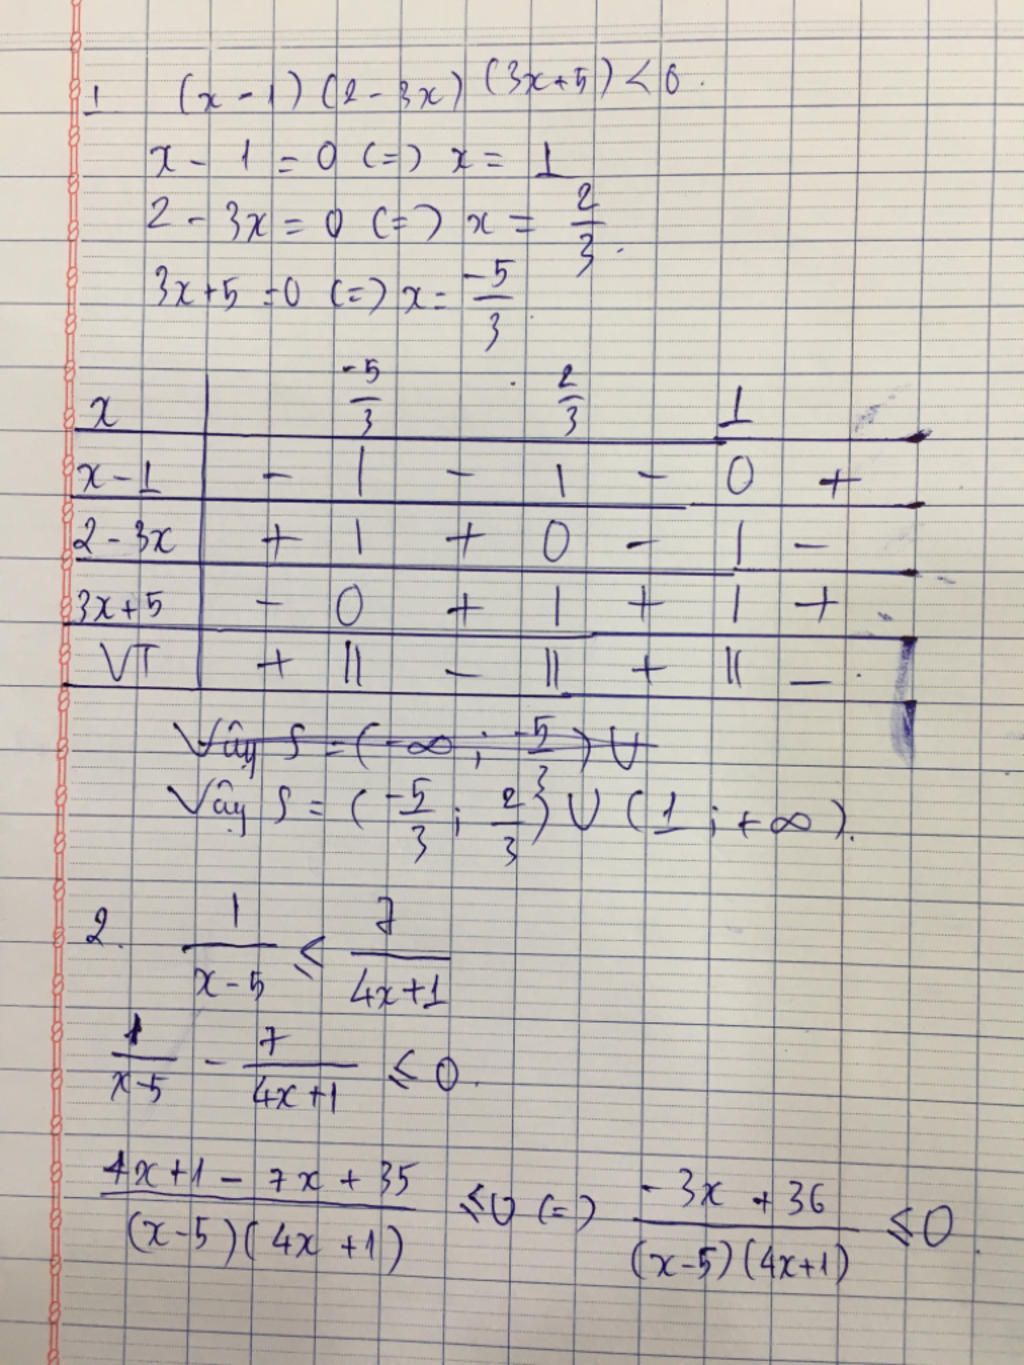 1 (x - 1) (2 - 3x) (3x+5) < 0.
x - 1 = 0 (=) x = 1
2 - 3x = 0 (=) x = 2/3.
3x+5 = 0 (=) x = -5/3.
x -5/3 2/3 1
x - 1 - | - | - 0 +
2 - 3x + | + 0 - | -
3x+5 - 0 + | + | +
VT + || - || + || -
Vây S = (-∞ ; -5/3) U
Vây S = (-5/3 ; 2/3) U (1 ; +∞).
2. 1/(x-5) ≤ 7/(4x+1)
1/(x-5) - 7/(4x+1) ≤ 0.
(4x+1 - 7x + 35)/((x-5)(4x+1)) ≤ 0 (=) (-3x + 36)/((x-5)(4x+1)) ≤ 0.